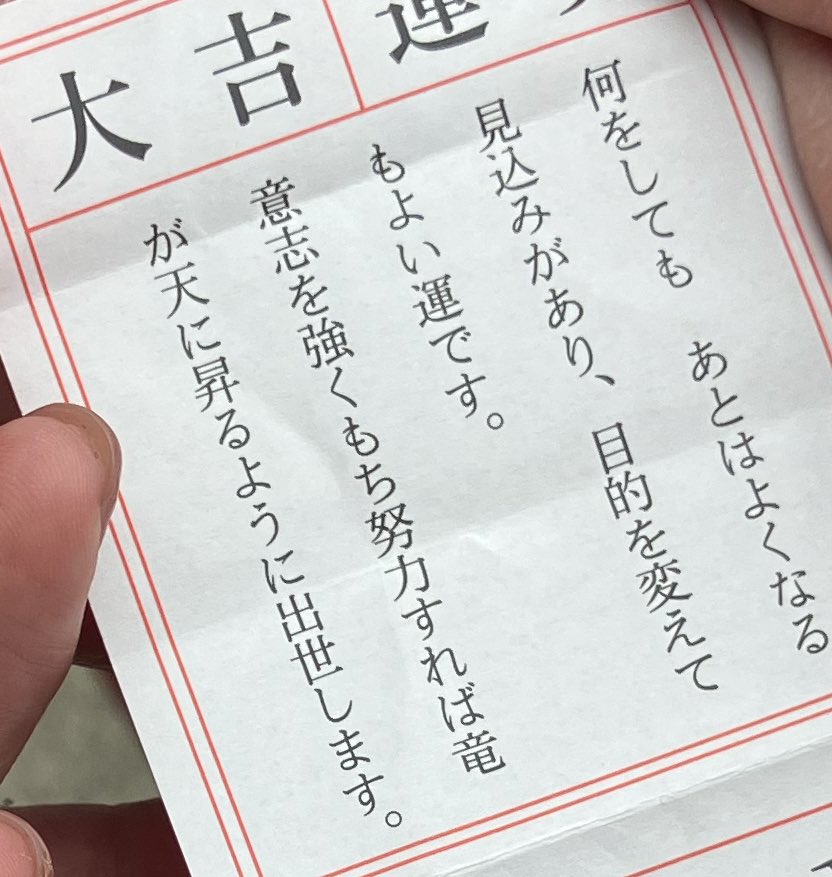 大吉
運
何をしても　あとはよくなる
見込みがあり、目的を変えて
もよい運です。
意志を強くもち努力すれば竜
が天に昇るように出世します。